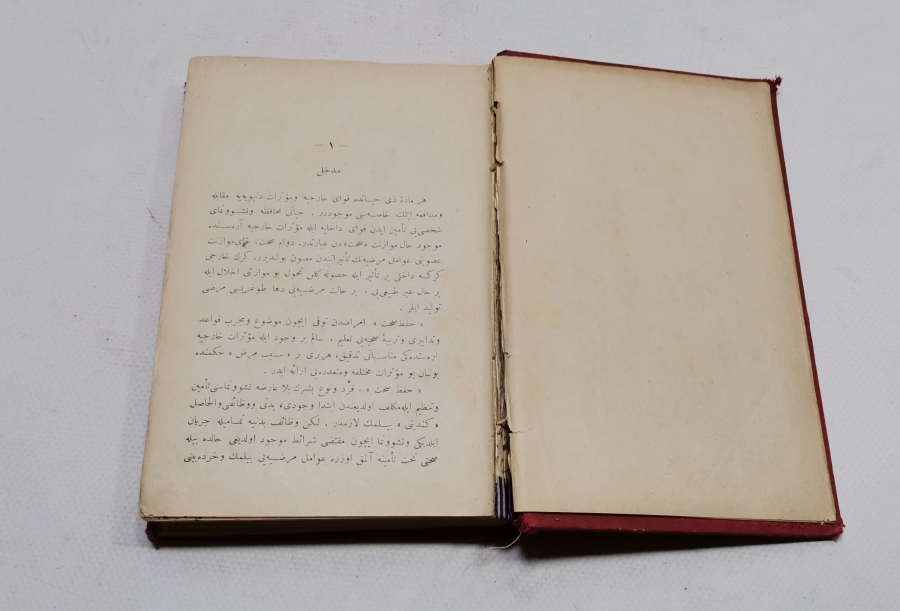 — ١ —
مدخل
هر مادهٔ ذی حیاتده قوای خارجیه ومؤثرات دنیویه‌یه مقابله
ومدافعه ایتمك خاصه‌سی موجوددر . حیاتی محافظه ونشوونمای
شخصی‌یی تأمین ایدن قوای داخلیه ایله مؤثرات خارجیه آره‌سنده
موجود حال موازنت «صحت» دن عبارتدر. دوام صحت، موازنت
عضویتی عوامل مرضیه‌نك تأثیراتندن مصون بولندیرر. كرك خارجی
كركسه داخلی بر تأثیر ایله حصوله كلن تحول بو موازنتی اخلال ایله
بر حال غیر طبیعی‌یی ، بر حالت مرضیه‌یی دها طوغریسی مرضی
تولید ایلر .
« حفظ صحت » امراضدن توقی ایچون موضوع ومجرب قواعد
وتدابیری وتربیهٔ صحیه‌یی تعلیم ، سالم بر وجود ایله مؤثرات خارجیه
آره‌سنده‌كی مناسباتی تدقیق، هربری بر « سبب مرض » حكمنده
بولنان بو مؤثرات مختلفه ومتعدده‌یی ارائه ایدر .
« حفظ صحت » ، فرد ونوع بشرك بلا عارضه نشوونماسنی تأمین
وتنظیم ایله مكلف اولدیغندن ابتدا وجودی، بدنی ووظائفنی والحاصل
« كندینی » بیلمك لازمدر . لكن وظائف بدنیه تمامیله جریان
ایلدیكی ونشوونما ایچون مقتضی شرائط موجود اولدیغی حالده بیله
صحتی تحت تأمینه آلمق اوزره عوامل مرضیه‌یی بیلمك وخرده‌بینی